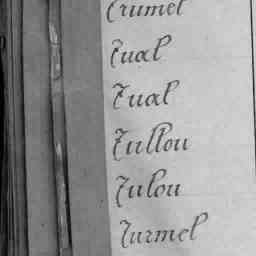 Trumel
Tual
Tual
Tullou
Tulou
Turmel